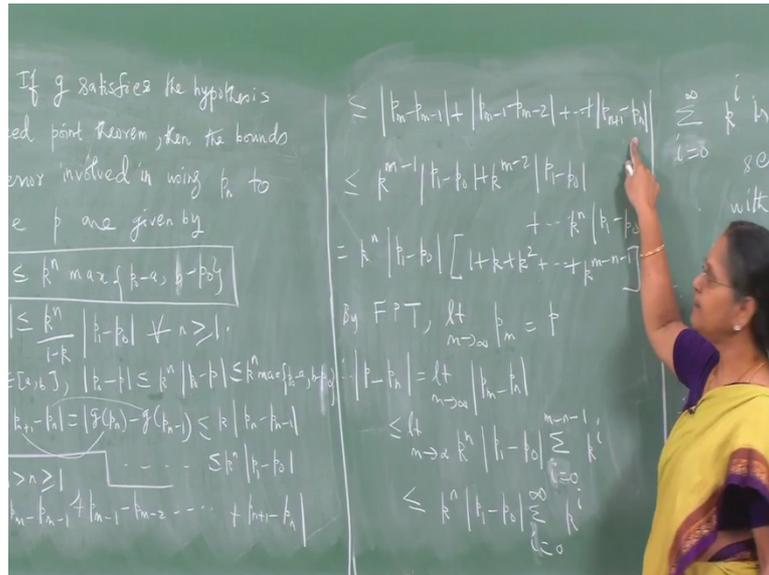 If g satisfies the hypothesis
ed point theorem, then the bounds
error involved in using pₙ to
e p are given by
≤ kⁿ max{p₀-a, b-p₀}
| ≤ kⁿ/(1-k) |p₁-p₀| ∀ n≥1.
∈[a,b], |pₙ-p| ≤ kⁿ |p₀-p| ≤ kⁿ max{p₀-a, b-p₀}
pₙ₊₁-pₙ| = |g(pₙ)-g(pₙ₋₁)| ≤ k |pₙ-pₙ₋₁|
..... ≤ kⁿ |p₁-p₀|
>n≥1
pₘ-pₘ₋₁+pₘ₋₁-pₘ₋₂ ..... +pₙ₊₁-pₙ|
≤ |pₘ-pₘ₋₁|+|pₘ₋₁-pₘ₋₂|+...+|pₙ₊₁-pₙ|
≤ kᵐ⁻¹ |p₁-p₀|+kᵐ⁻² |p₁-p₀|
+... kⁿ |p₁-p₀
= kⁿ |p₁-p₀| [1+k+k²+...+kᵐ⁻ⁿ⁻¹]
By FPT, lt m→∞ pₘ = p
∴ |p-pₙ| = lt m→∞ |pₘ-pₙ|
≤ lt m→∞ kⁿ |p₁-p₀| ∑ i=0 m-n-1 kⁱ
≤ kⁿ |p₁-p₀| ∑ i=0 ∞ kⁱ
∑ i=0 ∞ kⁱ is
se
with